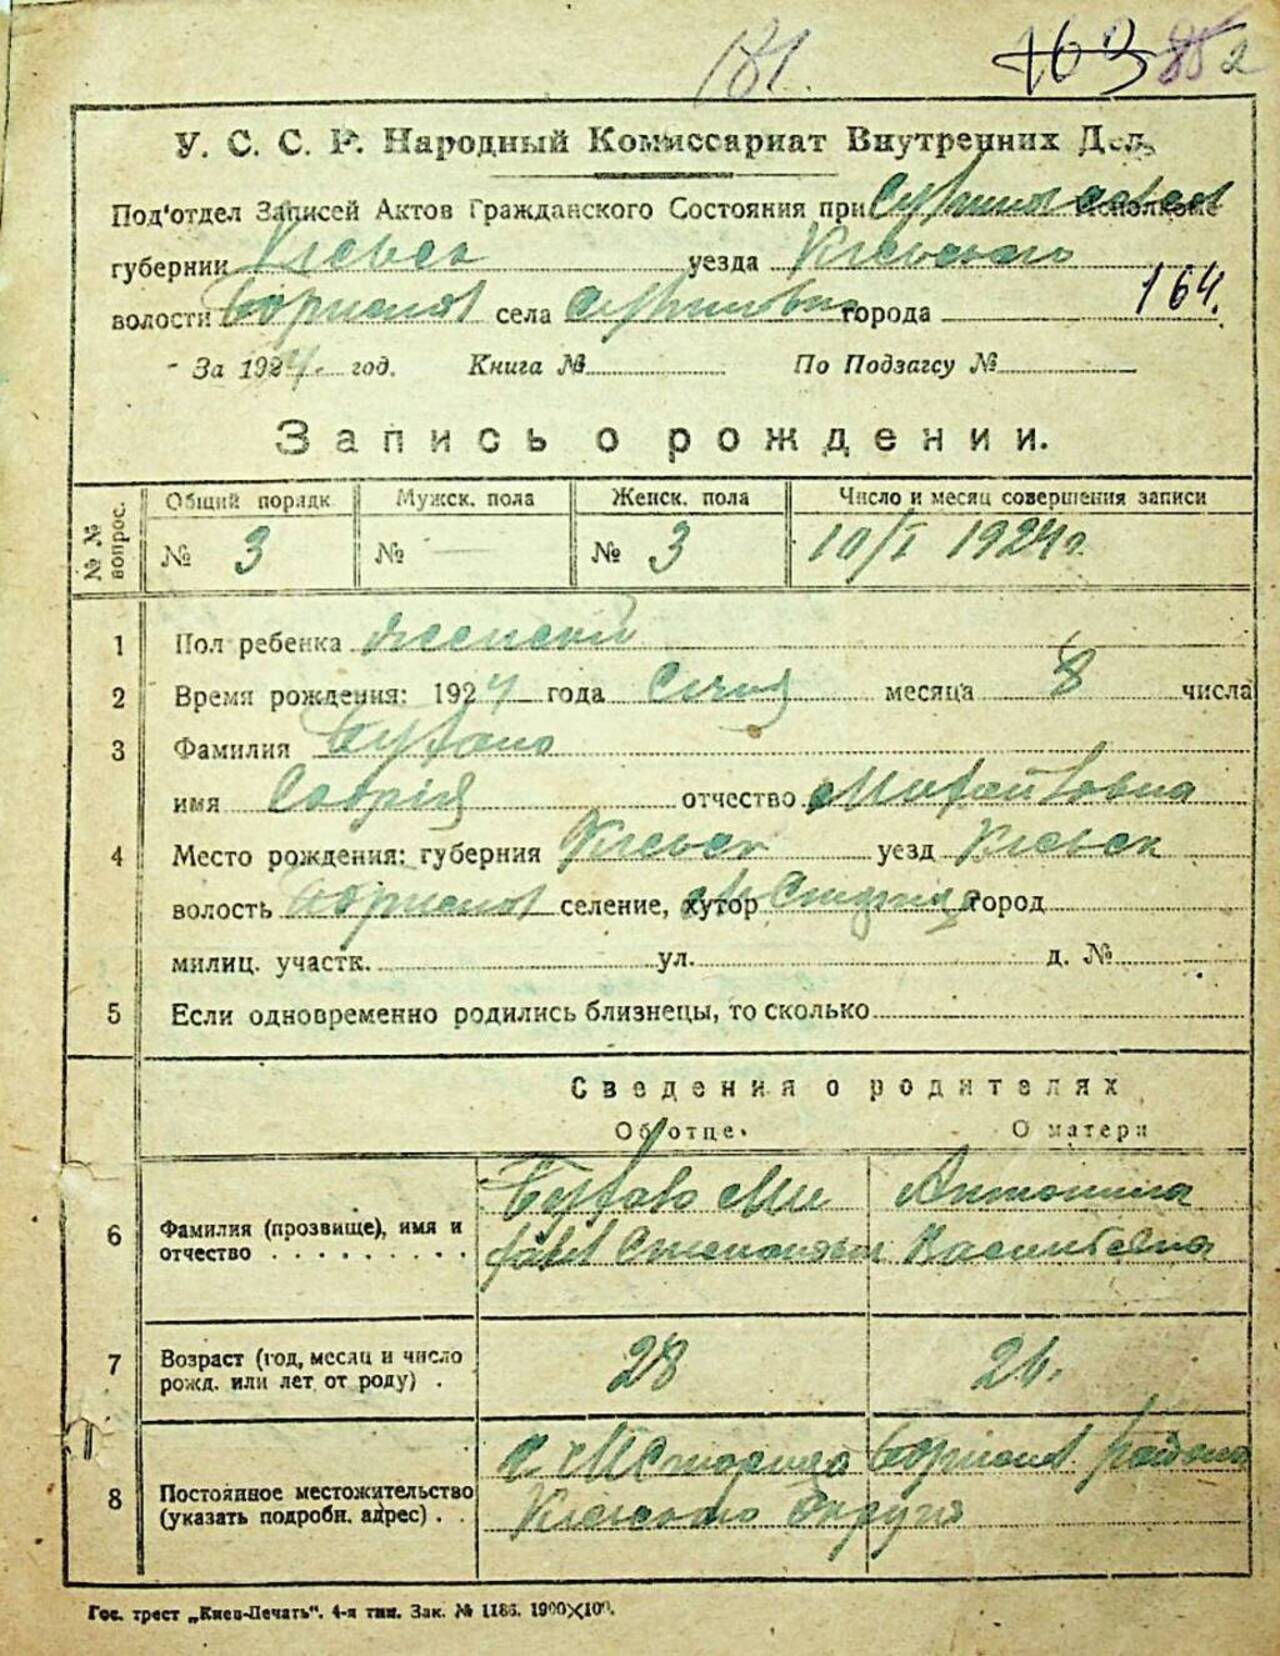 181.
163 85 2
У. С. С. Р. Народный Комиссариат Внутренних Дел.
Под'отдел Записей Актов Гражданского Состояния при Исполкоме
губернии Киевск уезда Киевского
волости села города 164.
За 1924. год. Книга № По Подзагсу №
Запись о рождении.
№ № вопрос. Общий порядк. Мужск. пола Женск. пола Число и месяц совершения записи
№ 3 № — № 3 10/I 1924 г.
1 Пол ребенка женский
2 Время рождения: 1924 года Січня месяца 8 числа
3 Фамилия
имя Софія отчество Михайловна
4 Место рождения: губерния Киевск уезд Киевск
волость селение, хутор город
милиц. участк. ул. д. №
5 Если одновременно родились близнецы, то сколько
Сведения о родителях
Об отце. О матери
6 Фамилия (прозвище), имя и отчество Ми Антонина
хаил Степанович Васильевна
7 Возраст (год, месяц и число рожд. или лет от роду) . 28 26.
8 Постоянное местожительство (указать подробн. адрес) . . района
Киевского Округа
Гос. трест „Киев-Печать“. 4-я тип. Зак. № 1186. 1900×100.